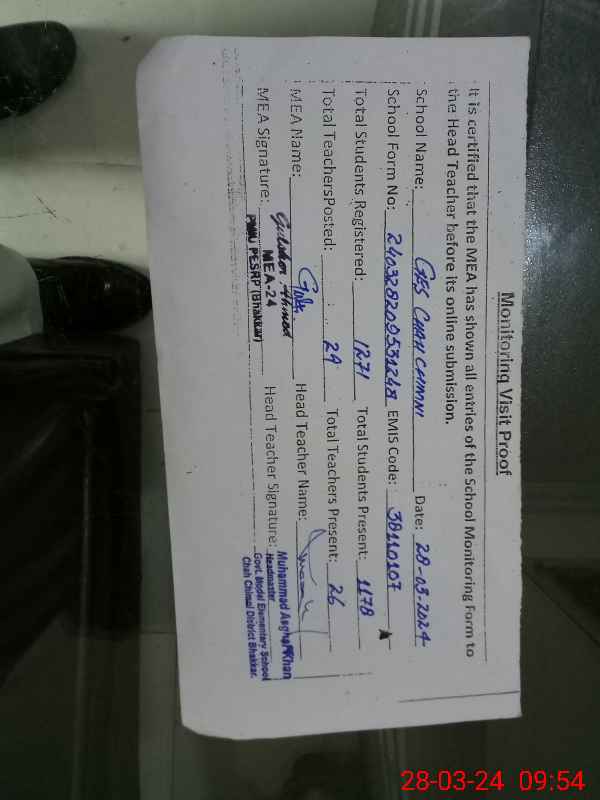 Monitoring Visit Proof
It is certified that the MEA has shown all entries of the School Monitoring Form to
the Head Teacher before its online submission.
School Name: GES CHAH CHIMNI Date: 28-03-2024
School Form No: EMIS Code: 38110107
Total Students Registered: 1271 Total Students Present: 1178
Total TeachersPosted: 29 Total Teachers Present: 26
MEA Name: Head Teacher Name:
Gulsher Ahmed
MEA Signature: MEA-24 Head Teacher Signature:
PMIU PESRP (Bhakkar)
Muhammad Asghar Khan
Headmaster
Govt. Model Elementary School
Chah Chimni District Bhakkar.
28-03-24 09:54